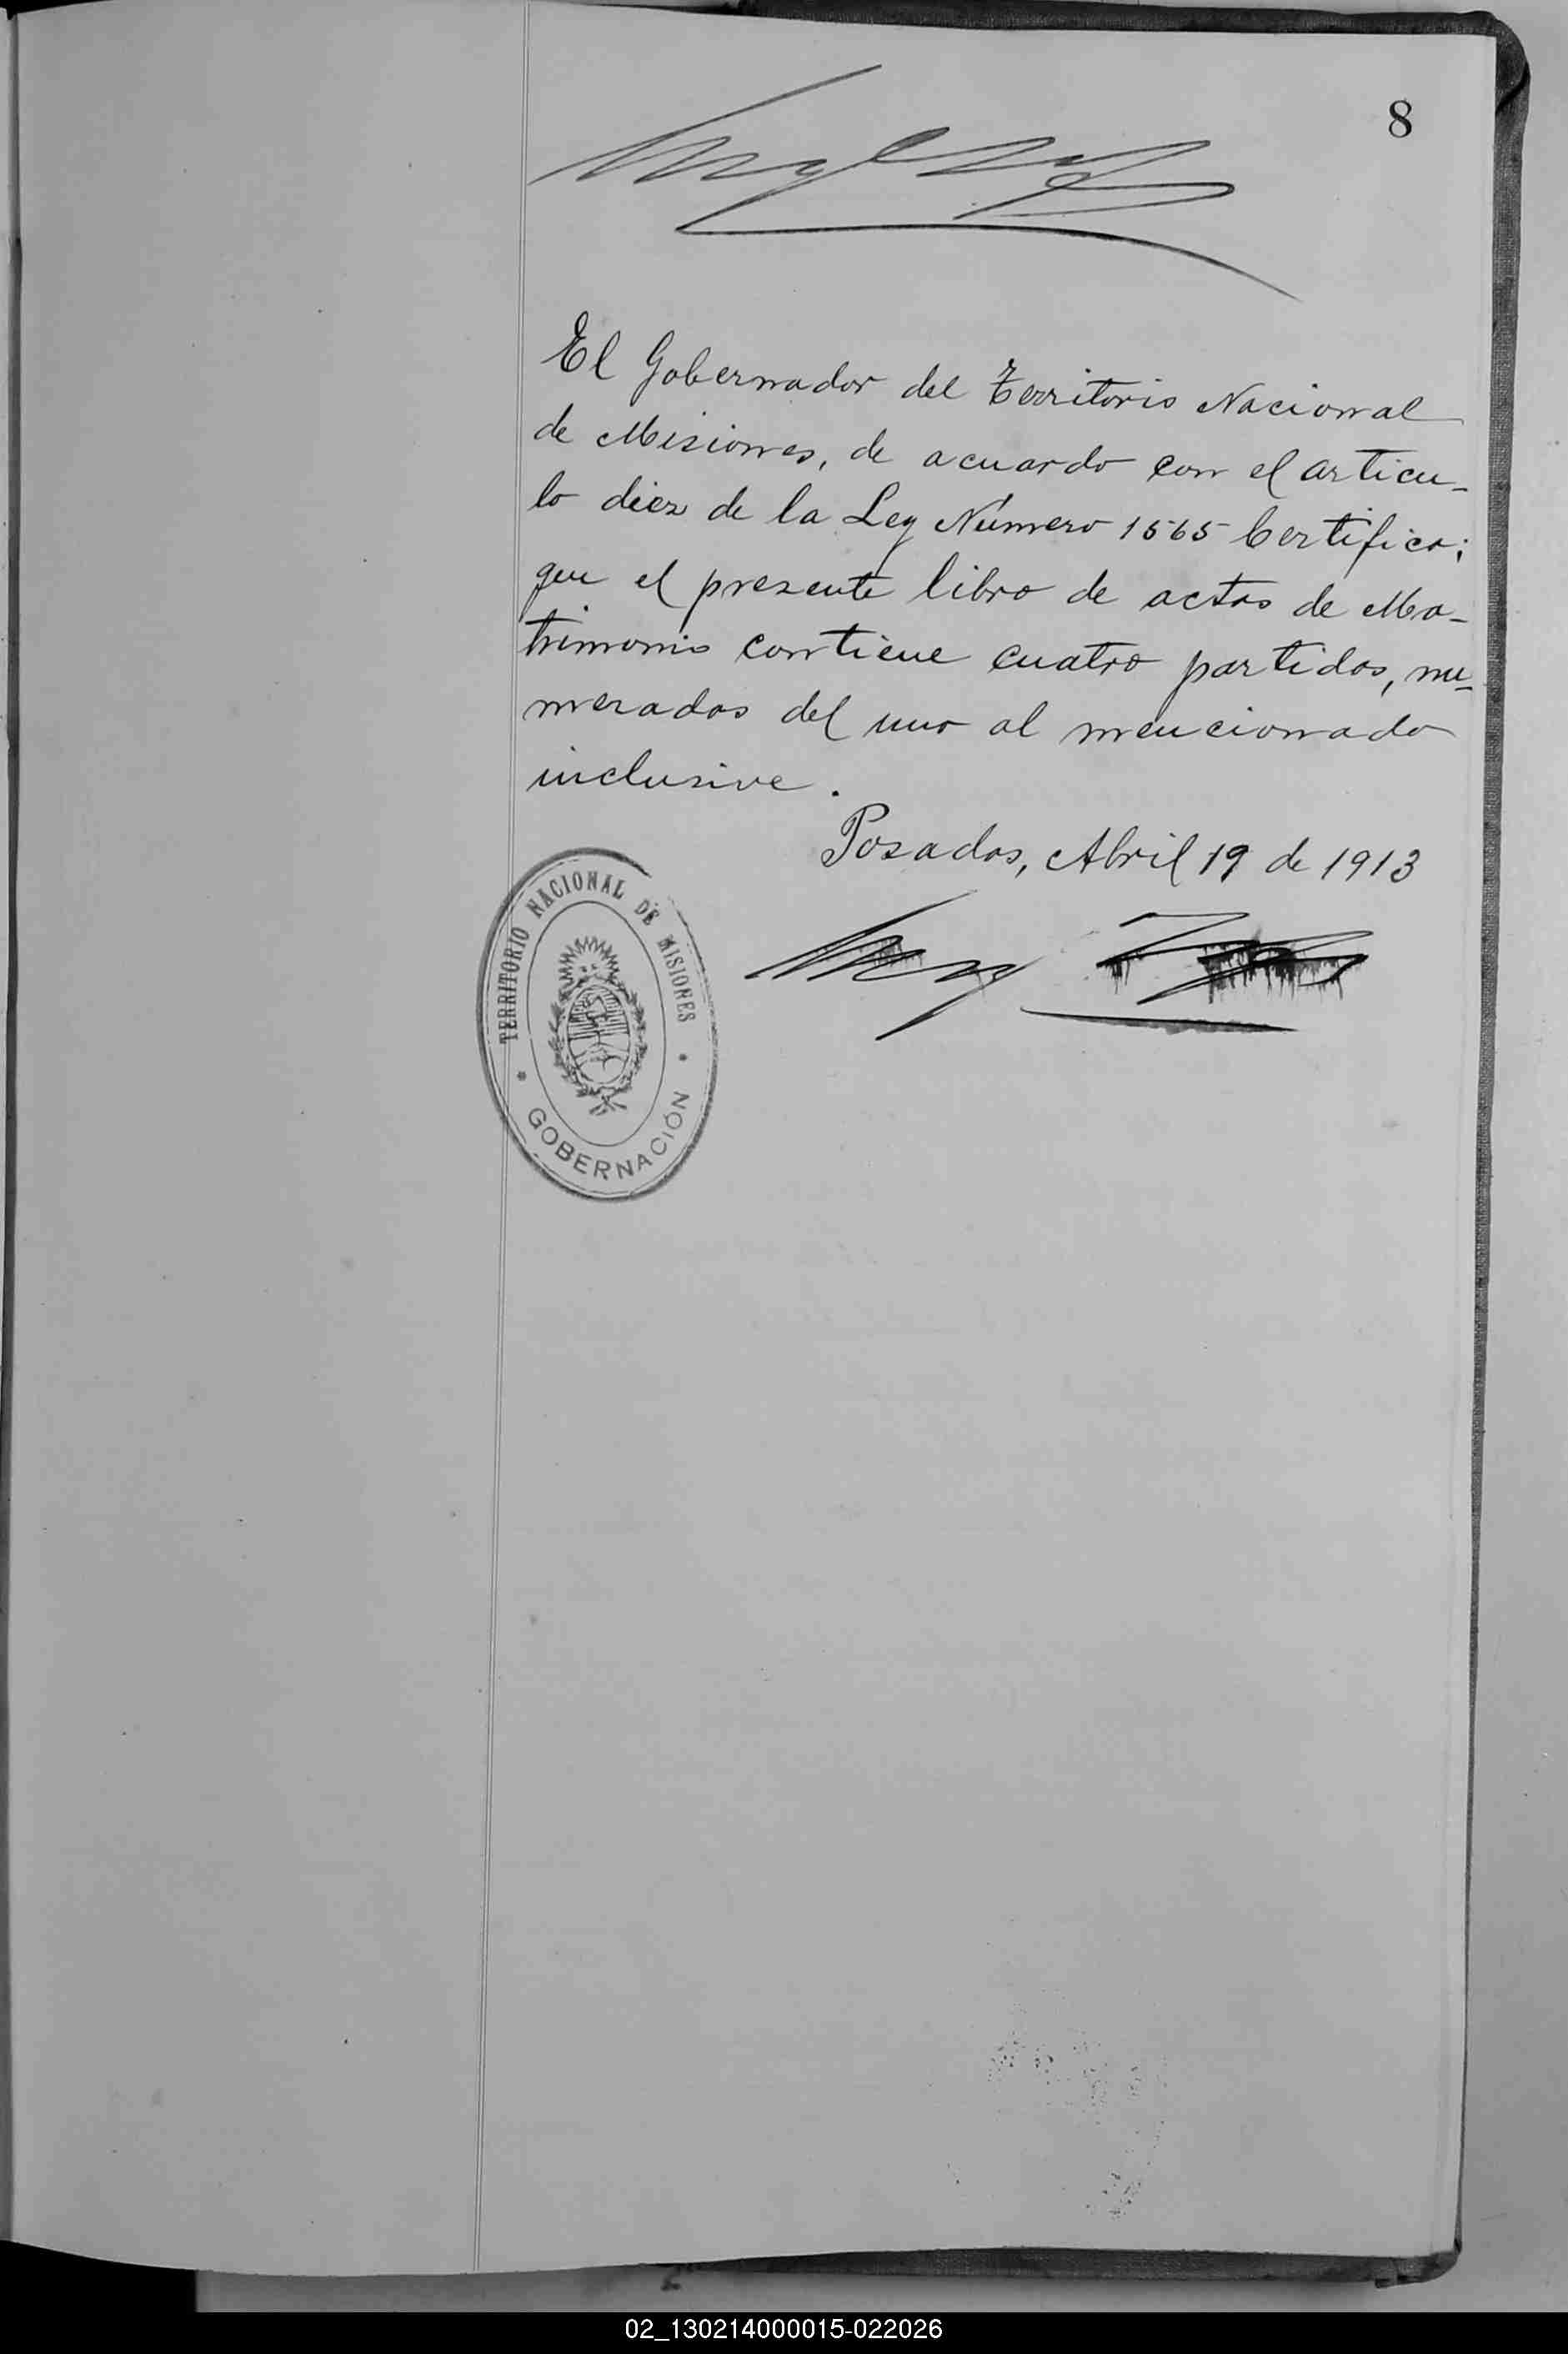 8
El Gobernador del Territorio Nacional
de Misiones, de acuardo con el articu-
lo diez de la Ley Número 1565 Certifica;
que el presente libro de actas de Ma-
trimonio contiene cuatro partidas, nu-
meradas del uno al mencionado
inclusive.
Posadas, Abril 19 de 1913
TERRITORIO NACIONAL DE MISIONES
* GOBERNACIÓN *
02_130214000015-022026